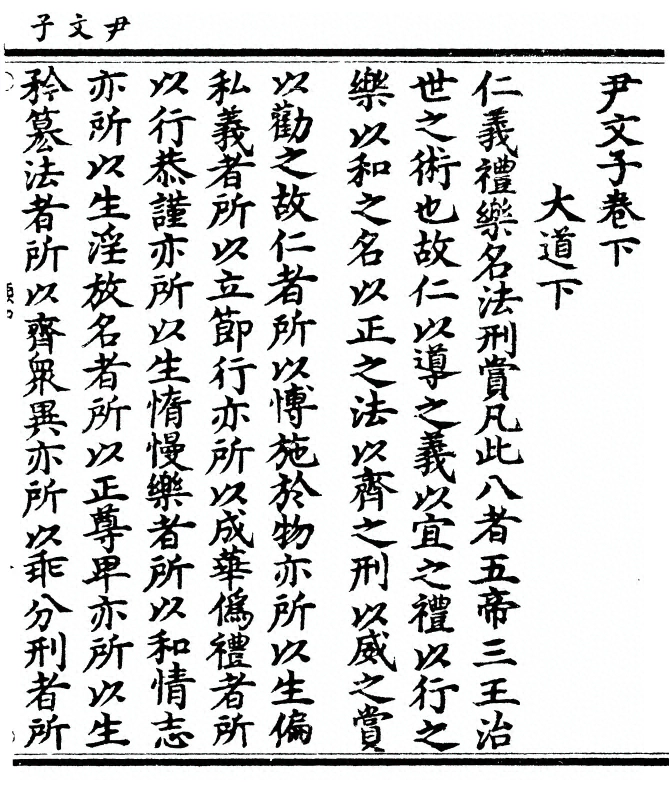 尹文子
尹文子卷下
大道下
仁義禮樂名法刑賞凡此八者五帝三王治
世之術也故仁以導之義以宜之禮以行之
樂以和之名以正之法以齊之刑以威之賞
以勸之故仁者所以博施於物亦所以生偏
私義者所以立節行亦所以成華偽禮者所
以行恭謹亦所以生惰慢樂者所以和情志
亦所以生淫放名者所以正尊卑亦所以生
矜篡法者所以齊衆異亦所以乖分刑者所